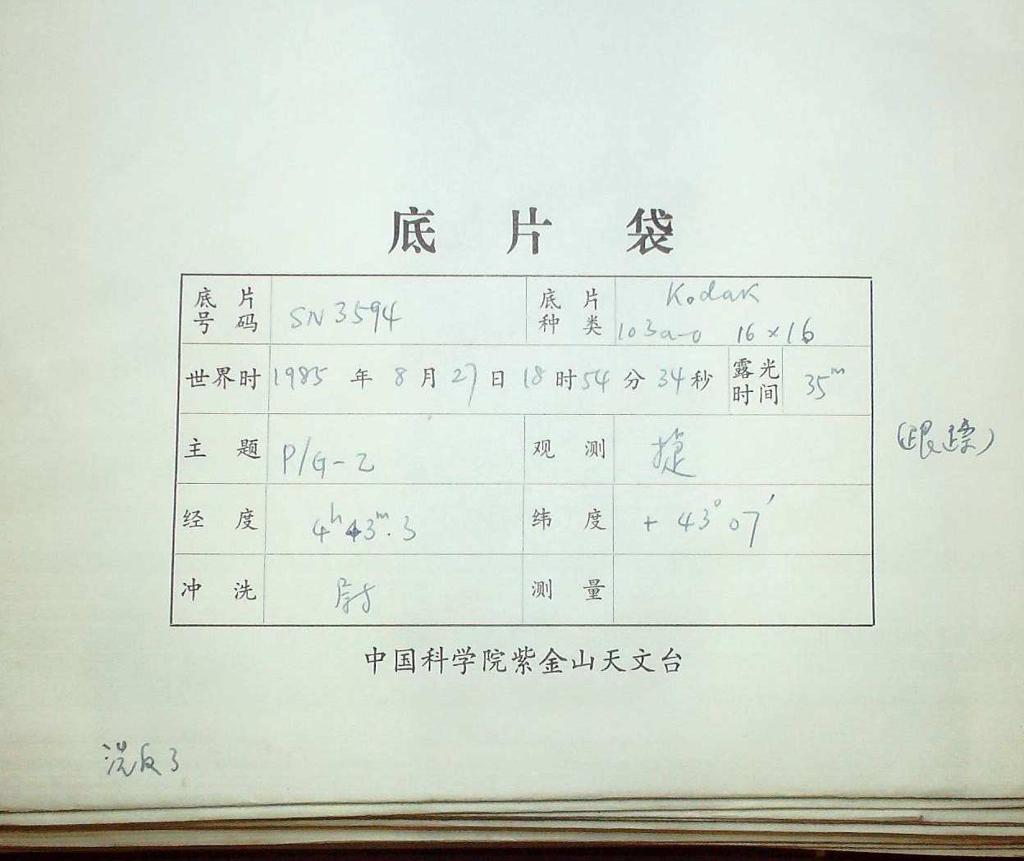 底 片 袋
底 片 号 码 SN3594 底 片 种 类 Kodak 103a-o 16×16
世界时 1985 年 8 月 27 日 18 时 54 分 34 秒 露光时间 35m
主 题 P/G-Z 观 测 捷
(跟踪)
经 度 4h43m.3 纬 度 +43°07′
冲 洗 尉 测 量
中国科学院紫金山天文台
洗反了